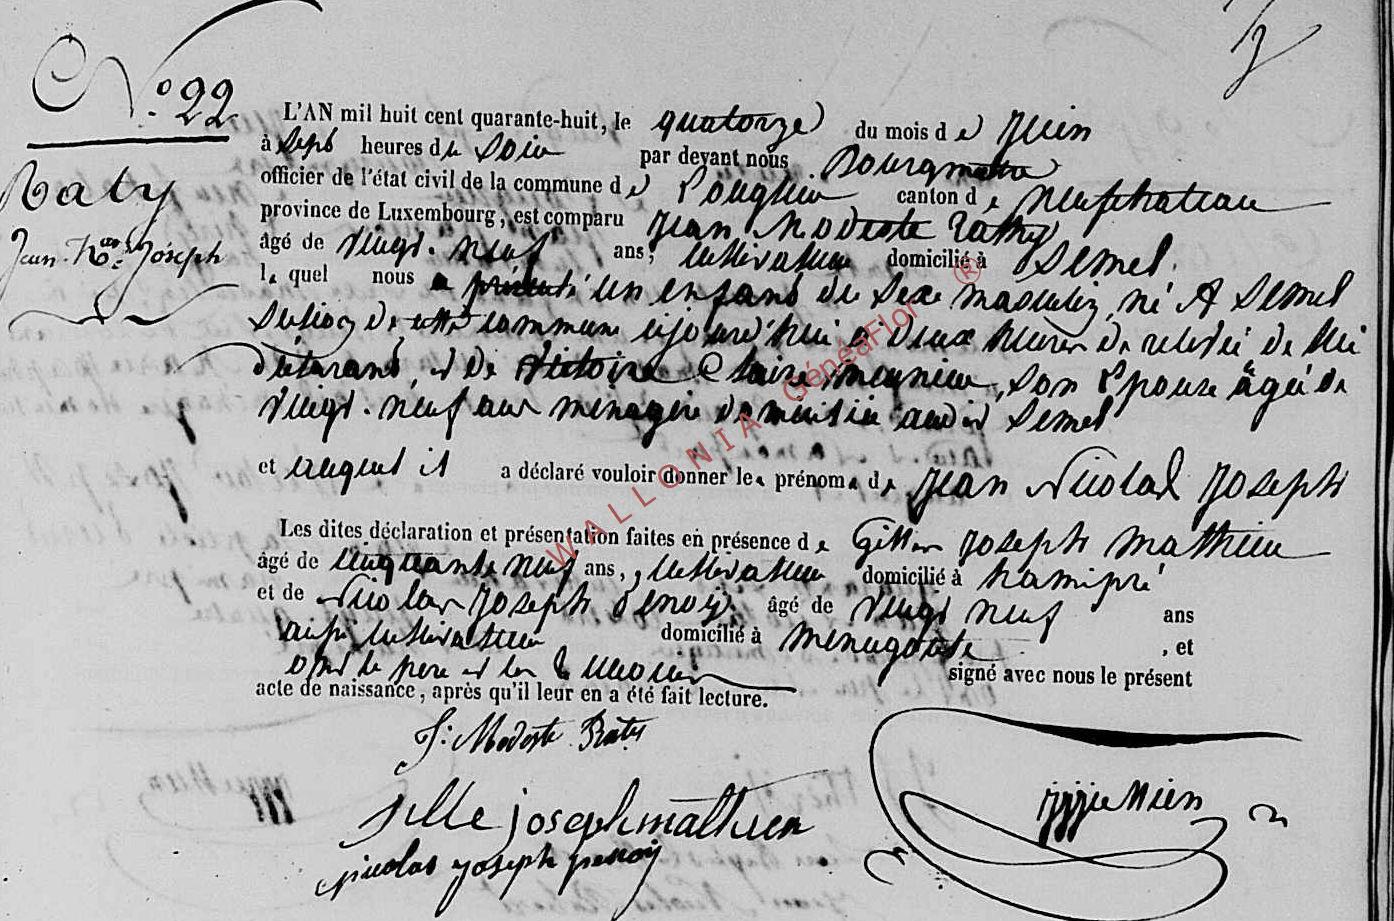 N.º 22
Raty
Jean-N.las Joseph
L'AN mil huit cent quarante-huit, le quatorze du mois de Juin
à Sept heures du Soir par devant nous Bourgmestre
officier de l'état civil de la commune de canton de neufchateau
province de Luxembourg, est comparu Jean Modeste Rathy
âgé de vingt-neuf ans, cultivateur domicilié à Semel
lequel nous a présenté un enfant de sexe masculin, né à Semel
section de cette commune aujourd'hui à deux heures de relevée de lui
déclarant, et de Victoire Claire meunier, son Epouse âgée de
vingt-neuf ans ménagère domiciliée audit Semel
et auquel il a déclaré vouloir donner les prénoms de Jean Nicolas Joseph
Les dites déclaration et présentation faites en présence de Gille Joseph Mathieu
âgé de cinquante neuf ans, cultivateur domicilié à hamipré
et de Nicolas Joseph âgé de vingt neuf ans
aussi cultivateur domicilié à Menugoutte, et
ont le père et les témoins signé avec nous le présent
acte de naissance, après qu'il leur en a été fait lecture.
J: Modeste Raty
jille joseph mathieu
nicolas joseph